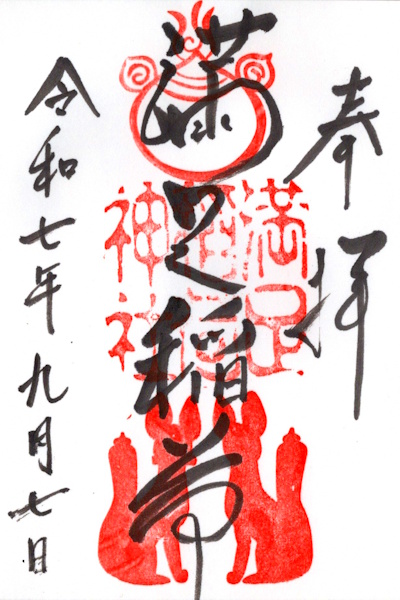 奉拝
満足稲荷
満足
稲荷
神社
令和七年九月七日